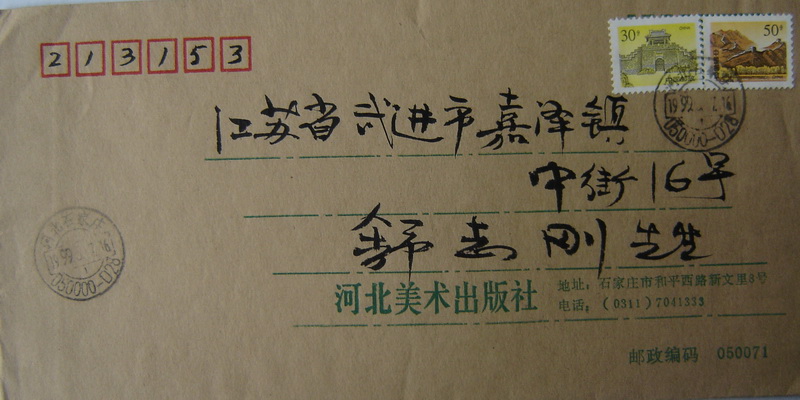 213153
30分
50分
江苏省武进市嘉泽镇
中街16号
舒志刚 先生
河北美术出版社
地址：石家庄市和平西路新文里8号
电话：（0311）7041333
邮政编码 050071
050000-028
050000-028